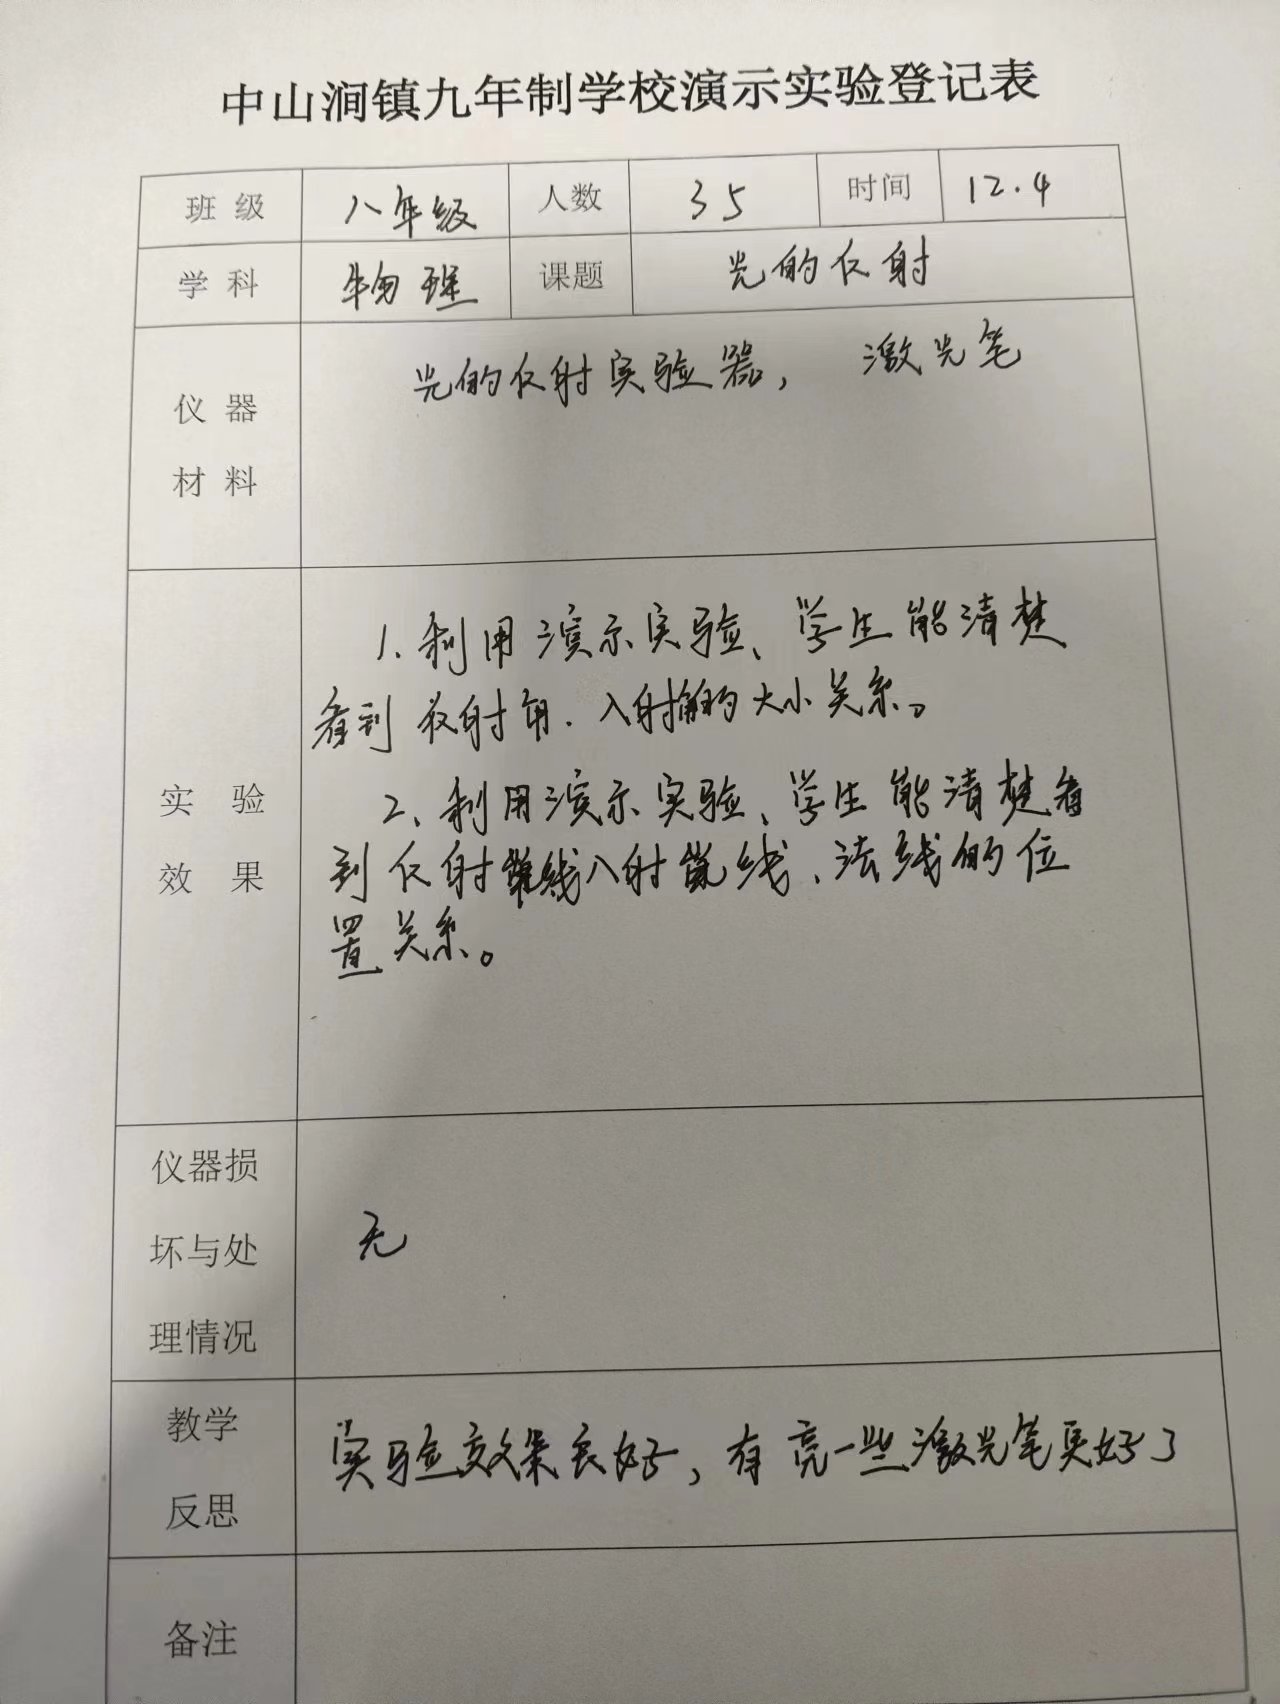 中山涧镇九年制学校演示实验登记表
班级 八年级 人数 35 时间 12.4
学科 物理 课题 光的反射
仪器材料 光的反射实验器, 激光笔
实验效果
1、利用演示实验、学生能清楚
看到反射角、入射角的大小关系。
2、利用演示实验、学生能清楚看
到反射光线入射光线、法线的位
置关系。
仪器损
坏与处 无
理情况
教学反思 实验效果良好,有亮一些激光笔更好了
备注